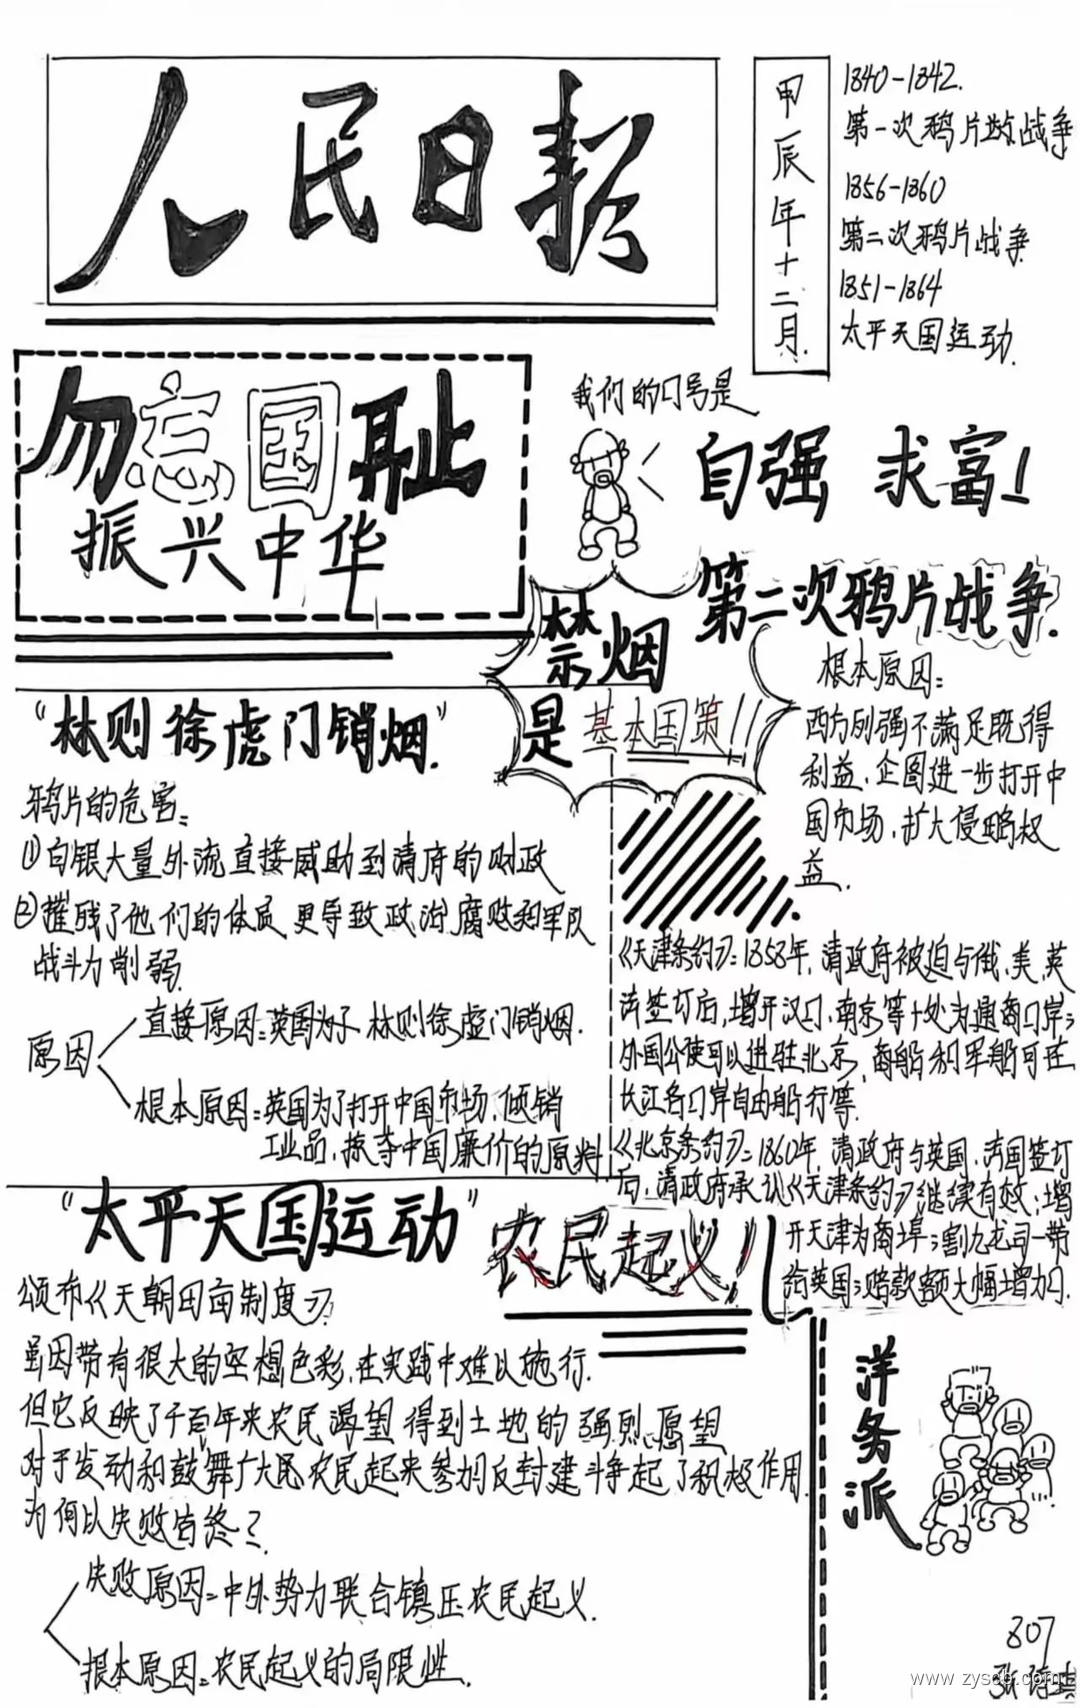 人民日报
甲辰年十二月
1840-1842.
第一次鸦片战争
1856-1860
第二次鸦片战争
1851-1864
太平天国运动.
勿忘国耻
振兴中华
我们的口号是
自强 求富!
禁烟
是基本国策!!
第二次鸦片战争.
根本原因:
西方列强不满足既得
利益,企图进一步打开中
国市场,扩大侵略权
益.
《天津条约》:1858年,清政府被迫与俄、美、英
法签订后,增开汉口、南京等十处为通商口岸;
外国公使可以进驻北京,商船和军船可在
长江各口岸自由船行等.
《北京条约》:1860年,清政府与英国、法国签订
后,清政府承认《天津条约》继续有效;增
开天津为商埠;割九龙司一带
给英国;赔款额大幅增加.
"林则徐虎门销烟"
鸦片的危害:
①白银大量外流直接威助到清府的财政
②摧残了他们的体质更导致政治腐败和军队
战斗力削弱.
原因
直接原因:英国为了林则徐虚门销烟.
根本原因:英国为了打开中国市场,倾销
工业品,掠夺中国廉价的原料
"太平天国运动"
农民起义!
颁布《天朝田亩制度》?
虽因带有很大的空想色彩,在实践中难以施行.
但它反映了千百年来农民渴望得到土地的强烈愿望
对于发动和鼓舞广大民农民起来参加反封建斗争起了积极作用.
为何以失败告终?
失败原因:中外势力联合镇压农民起义.
根本原因:农民起义的局限性.
洋务派
807
www.zyscb.com